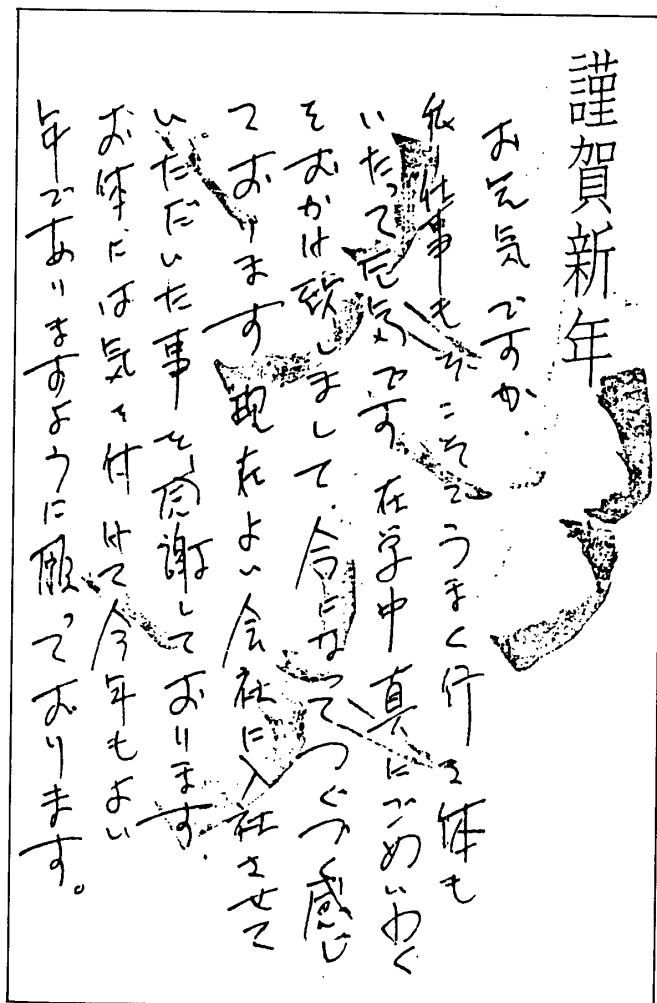 謹賀新年
お元気ですか.
私仕事もそこそこうまく行き体も
いたって元気です 在学中真にごめいわく
をおかけ致しまして、今になってつくづく感じ
ております 現在よい会社に入社させて
いただいた事を感謝しております.
お体には気を付けて今年もよい
年でありますように願っております。